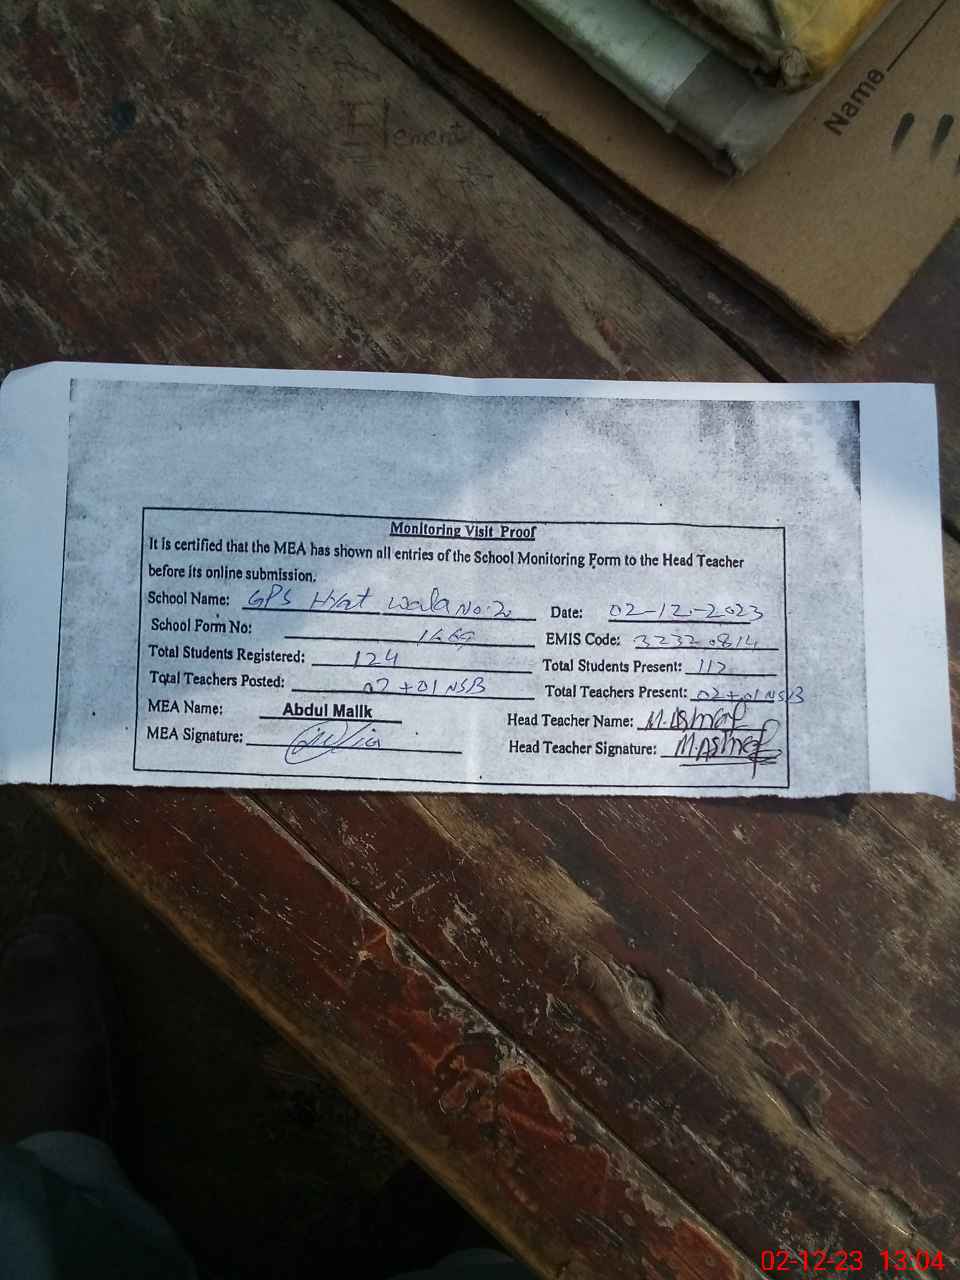 Element
Name
Monitoring Visit Proof
It is certified that the MEA has shown all entries of the School Monitoring Form to the Head Teacher
before its online submission.
School Name: GPS Hyat wala No: 2 Date: 02-12-2023
School Form No: EMIS Code: 32320814
Total Students Registered: 124 Total Students Present: 112
Total Teachers Posted: 02+01 NSB Total Teachers Present: 02+01 NSB
MEA Name: Abdul Malik Head Teacher Name: M. Ashraf
MEA Signature: Head Teacher Signature: M. Ashraf
02-12-23 13:04